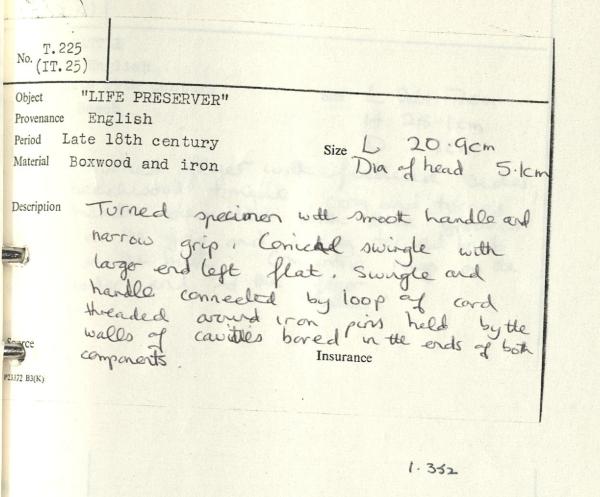 No. T.225
(IT.25)
Object "LIFE PRESERVER"
Provenance English
Period Late 18th century
Size L 20.9cm
Material Boxwood and iron
Dia of head 5.1cm
Description Turned specimen with smooth handle and
narrow grip. Conical swingle with
larger end left flat. Swingle and
handle connected by loop of cord
threaded around iron pins held by the
walls of cavities bored in the ends of both
components.
Source
Insurance
P23372 B3(K)
1.352